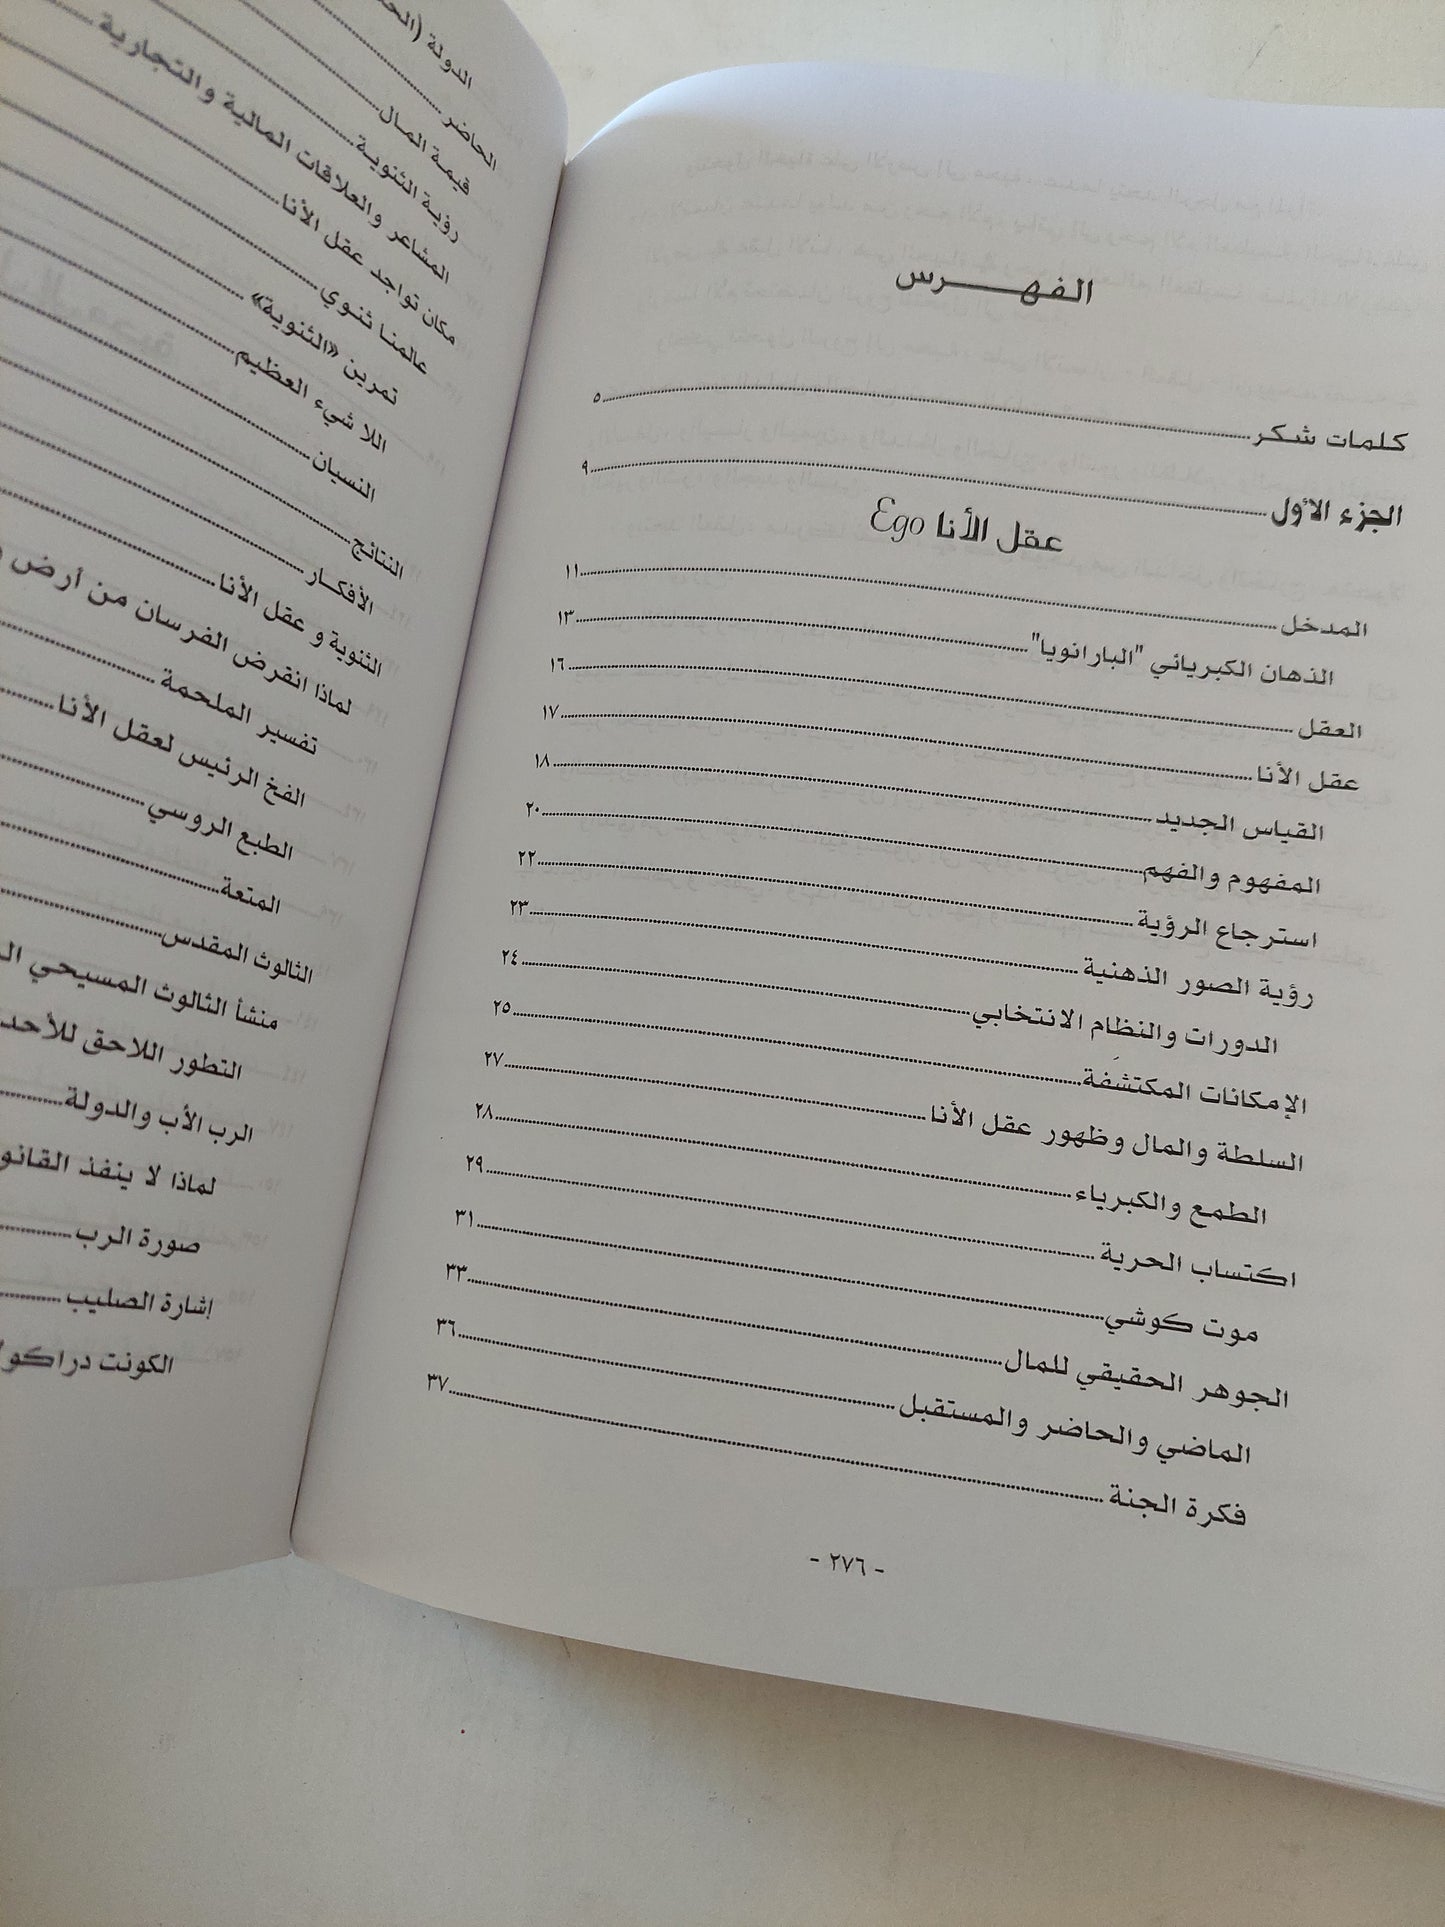 الفهـــرس
كلمات شكر ٥
الجزء الأول ٩
عقل الأنا Ego
المدخل ١١
الذهان الكبريائي "البارانويا" ١٣
العقل ١٦
عقل الأنا ١٧
القياس الجديد ١٨
المفهوم والفهم ٢٠
استرجاع الرؤية ٢٢
رؤية الصور الذهنية ٢٣
الدورات والنظام الانتخابي ٢٤
الإمكانات المكتشفة ٢٥
السلطة والمال وظهور عقل الأنا ٢٧
الطمع والكبرياء ٢٨
اكتساب الحرية ٢٩
موت كوشي ٣١
الجوهر الحقيقي للمال ٣٣
الماضي والحاضر والمستقبل ٣٦
فكرة الجنة ٣٧
- ٢٧٦ -
الدولة
الحاضر
قيمة المال
رؤية الثنوية
المشاعر والعلاقات المالية والتجارية
مكان تواجد عقل الأنا
عالمنا ثنوي
تمرين «الثنوية»
اللا شيء العظيم
النسيان
النتائج
الأفكار
الثنوية و عقل الأنا
لماذا انقرض الفرسان من أرض
تفسير الملحمة
الفخ الرئيس لعقل الأنا
الطبع الروسي
المتعة
الثالوث المقدس
منشأ الثالوث المسيحي
التطور اللاحق
الرب الأب والدولة
لماذا لا ينفذ
صورة الرب
إشارة الصليب
الكونت